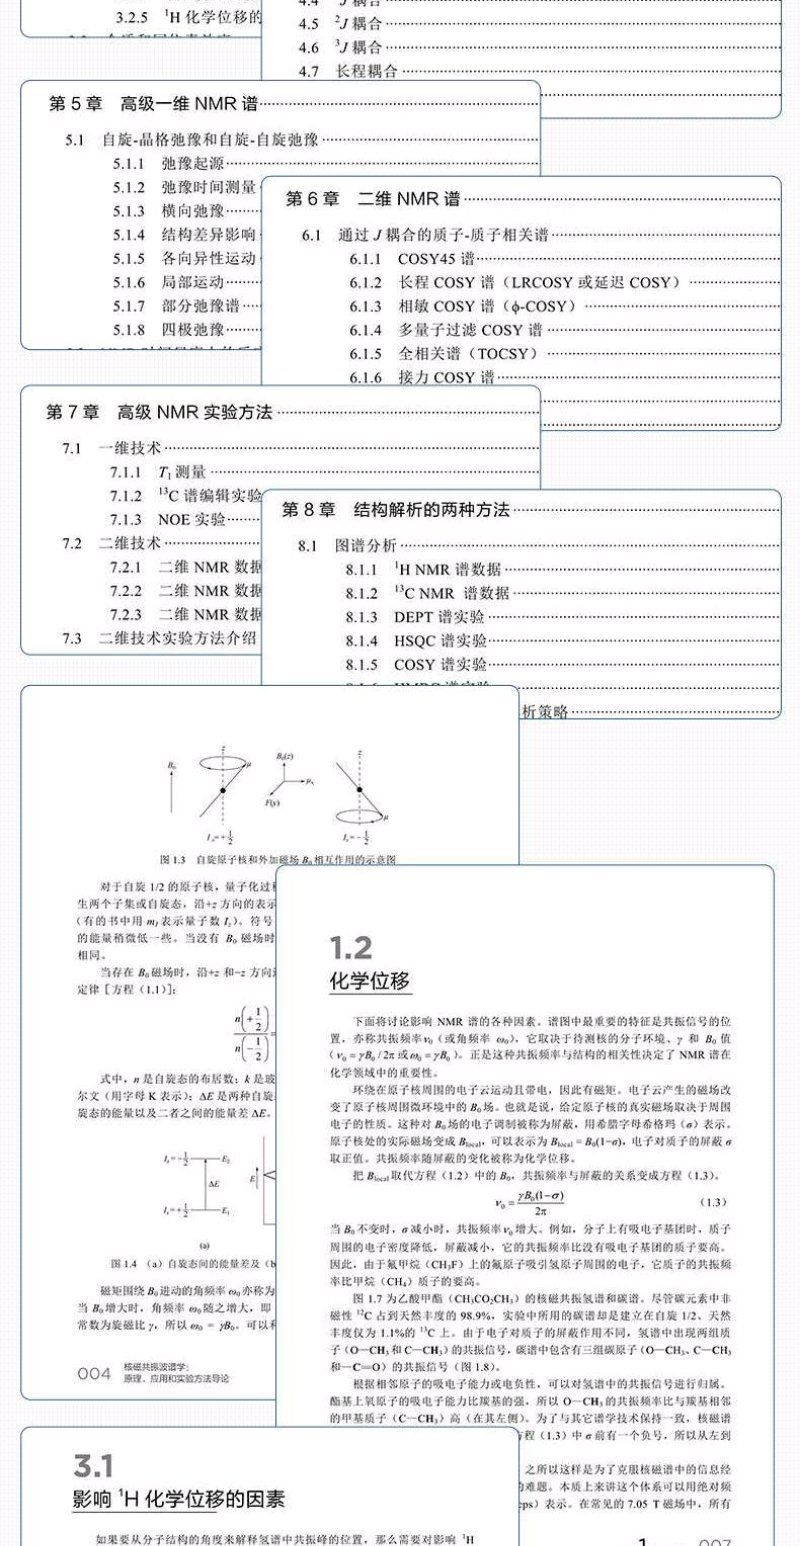 3.2.5 ¹H 化学位移的
4.5 ²J 耦合
4.6 ³J 耦合
4.7 长程耦合
第 5 章 高级一维 NMR 谱
5.1 自旋-晶格弛豫和自旋-自旋弛豫
5.1.1 弛豫起源
5.1.2 弛豫时间测量
5.1.3 横向弛豫
5.1.4 结构差异影响
5.1.5 各向异性运动
5.1.6 局部运动
5.1.7 部分弛豫谱
5.1.8 四极弛豫
第 6 章 二维 NMR 谱
6.1 通过 J 耦合的质子-质子相关谱
6.1.1 COSY45 谱
6.1.2 长程 COSY 谱（LRCOSY 或延迟 COSY）
6.1.3 相敏 COSY 谱（ϕ-COSY）
6.1.4 多量子过滤 COSY 谱
6.1.5 全相关谱（TOCSY）
6.1.6 接力 COSY 谱
第 7 章 高级 NMR 实验方法
7.1 一维技术
7.1.1 T₁ 测量
7.1.2 ¹³C 谱编辑实验
7.1.3 NOE 实验
7.2 二维技术
7.2.1 二维 NMR 数据
7.2.2 二维 NMR 数据
7.2.3 二维 NMR 数据
7.3 二维技术实验方法介绍
第 8 章 结构解析的两种方法
8.1 图谱分析
8.1.1 ¹H NMR 谱数据
8.1.2 ¹³C NMR 谱数据
8.1.3 DEPT 谱实验
8.1.4 HSQC 谱实验
8.1.5 COSY 谱实验
析策略
B₀ z μ B₀(z) μₓ F(y) z μ
I_z=+1/2 I_z=-1/2
图 1.3 自旋原子核和外加磁场 B₀ 相互作用的示意图
对于自旋 1/2 的原子核，量子化过
生两个子集或自旋态，沿+z 方向的表示
（有的书中用 m_I 表示量子数 I_z）。符号
的能量稍微低一些。当没有 B₀ 磁场时
相同。
当存在 B₀ 磁场时，沿+z 和-z 方向
定律［方程（1.1）］：
n(+1/2) / n(-1/2) =
式中，n 是自旋态的布居数；k 是玻
尔文（用字母 K 表示）；ΔE 是两种自旋
旋态的能量以及二者之间的能量差 ΔE。
I_z=-1/2 E₂
ΔE E
I_z=+1/2 E₁
(a)
图 1.4 （a）自旋态间的能量差及（b
磁矩围绕 B₀ 进动的角频率 ω₀ 亦称为
当 B₀ 增大时，角频率 ω₀ 随之增大，即
常数为旋磁比 γ，所以 ω₀ = γB₀。可以
004 核磁共振波谱学：
原理、应用和实验方法导论
1.2
化学位移
下面将讨论影响 NMR 谱的各种因素。谱图中最重要的特征是共振信号的位
置，亦称共振频率 ν₀（或角频率 ω₀），它取决于待测核的分子环境、γ 和 B₀ 值
（ν₀ = γB₀ / 2π 或 ω₀ = γB₀）。正是这种共振频率与结构的相关性决定了 NMR 谱在
化学领域中的重要性。
环绕在原子核周围的电子云运动且带电，因此有磁矩。电子云产生的磁场改
变了原子核周围微环境中的 B₀ 场。也就是说，给定原子核的真实磁场取决于周围
电子的性质。这种对 B₀ 场的电子调制被称为屏蔽，用希腊字母希格玛（σ）表示。
原子核处的实际磁场变成 B_local，可以表示为 B_local = B₀(1-σ)，电子对质子的屏蔽 σ
取正值。共振频率随屏蔽的变化被称为化学位移。
把 B_local 取代方程（1.2）中的 B₀，共振频率与屏蔽的关系变成方程（1.3）。
ν₀ = γB₀(1-σ) / 2π （1.3）
当 B₀ 不变时，σ 减小时，共振频率 ν₀ 增大。例如，分子上有吸电子基团时，质子
周围的电子密度降低，屏蔽减小，它的共振频率比没有吸电子基团的质子要高。
因此，由于氟甲烷（CH₃F）上的氟原子吸引氢原子周围的电子，它质子的共振频
率比甲烷（CH₄）质子的要高。
图 1.7 为乙酸甲酯（CH₃CO₂CH₃）的核磁共振氢谱和碳谱。尽管碳元素中非
磁性 ¹²C 占到天然丰度的 98.9%，实验中所用的碳谱却是建立在自旋 1/2、天然
丰度仅为 1.1%的 ¹³C 上。由于电子对质子的屏蔽作用不同，氢谱中出现两组质
子（O—CH₃ 和 C—CH₃）的共振信号，碳谱中包含有三组碳原子（O—CH₃、C—CH₃
和—C=O）的共振信号（图 1.8）。
根据相邻原子的吸电子能力或电负性，可以对氢谱中的共振信号进行归属。
酯基上氧原子的吸电子能力比羰基的强，所以 O—CH₃ 的共振频率比与羰基相邻
的甲基质子（C—CH₃）高（在其左侧）。为了与其它谱学技术保持一致，核磁谱
程（1.3）中 σ 前有一个负号，所以从左到
之所以这样是为了克服核磁谱中的信息经
的难题。本质上来讲这个体系可以用绝对频
eps）表示。在常见的 7.05 T 磁场中，所有
3.1
影响 ¹H 化学位移的因素
如果要从分子结构的角度来解释氢谱中共振峰的位置，那么需要对影响 ¹H